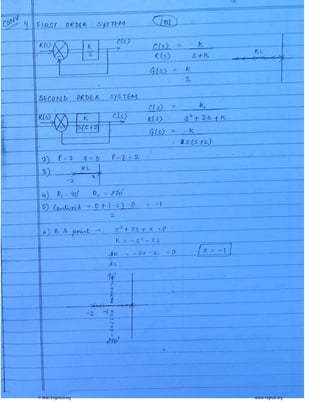 CONT
4 FIRST ORDER SYSTEM
101
R(s) K/s C(s)
C(s)/R(s) = K/s+K
RL
G(s) = K/s
SECOND ORDER SYSTEM
R(s) K/s(s+2) C(s)
C(s)/R(s) = K/s²+2s+K
G(s) = K/s(s+2)
2) P=2 Z=0 P-Z=2
3) RL
-2
4) θ₁=90° θ₂=270°
5) Centroid = 0+(-2)-0/2 = -1
6) B.A point → s²+2s+K=0
K = -s²-2s
dK/ds = -2s-2 = 0 s=-1
90°
-2 -1
270°